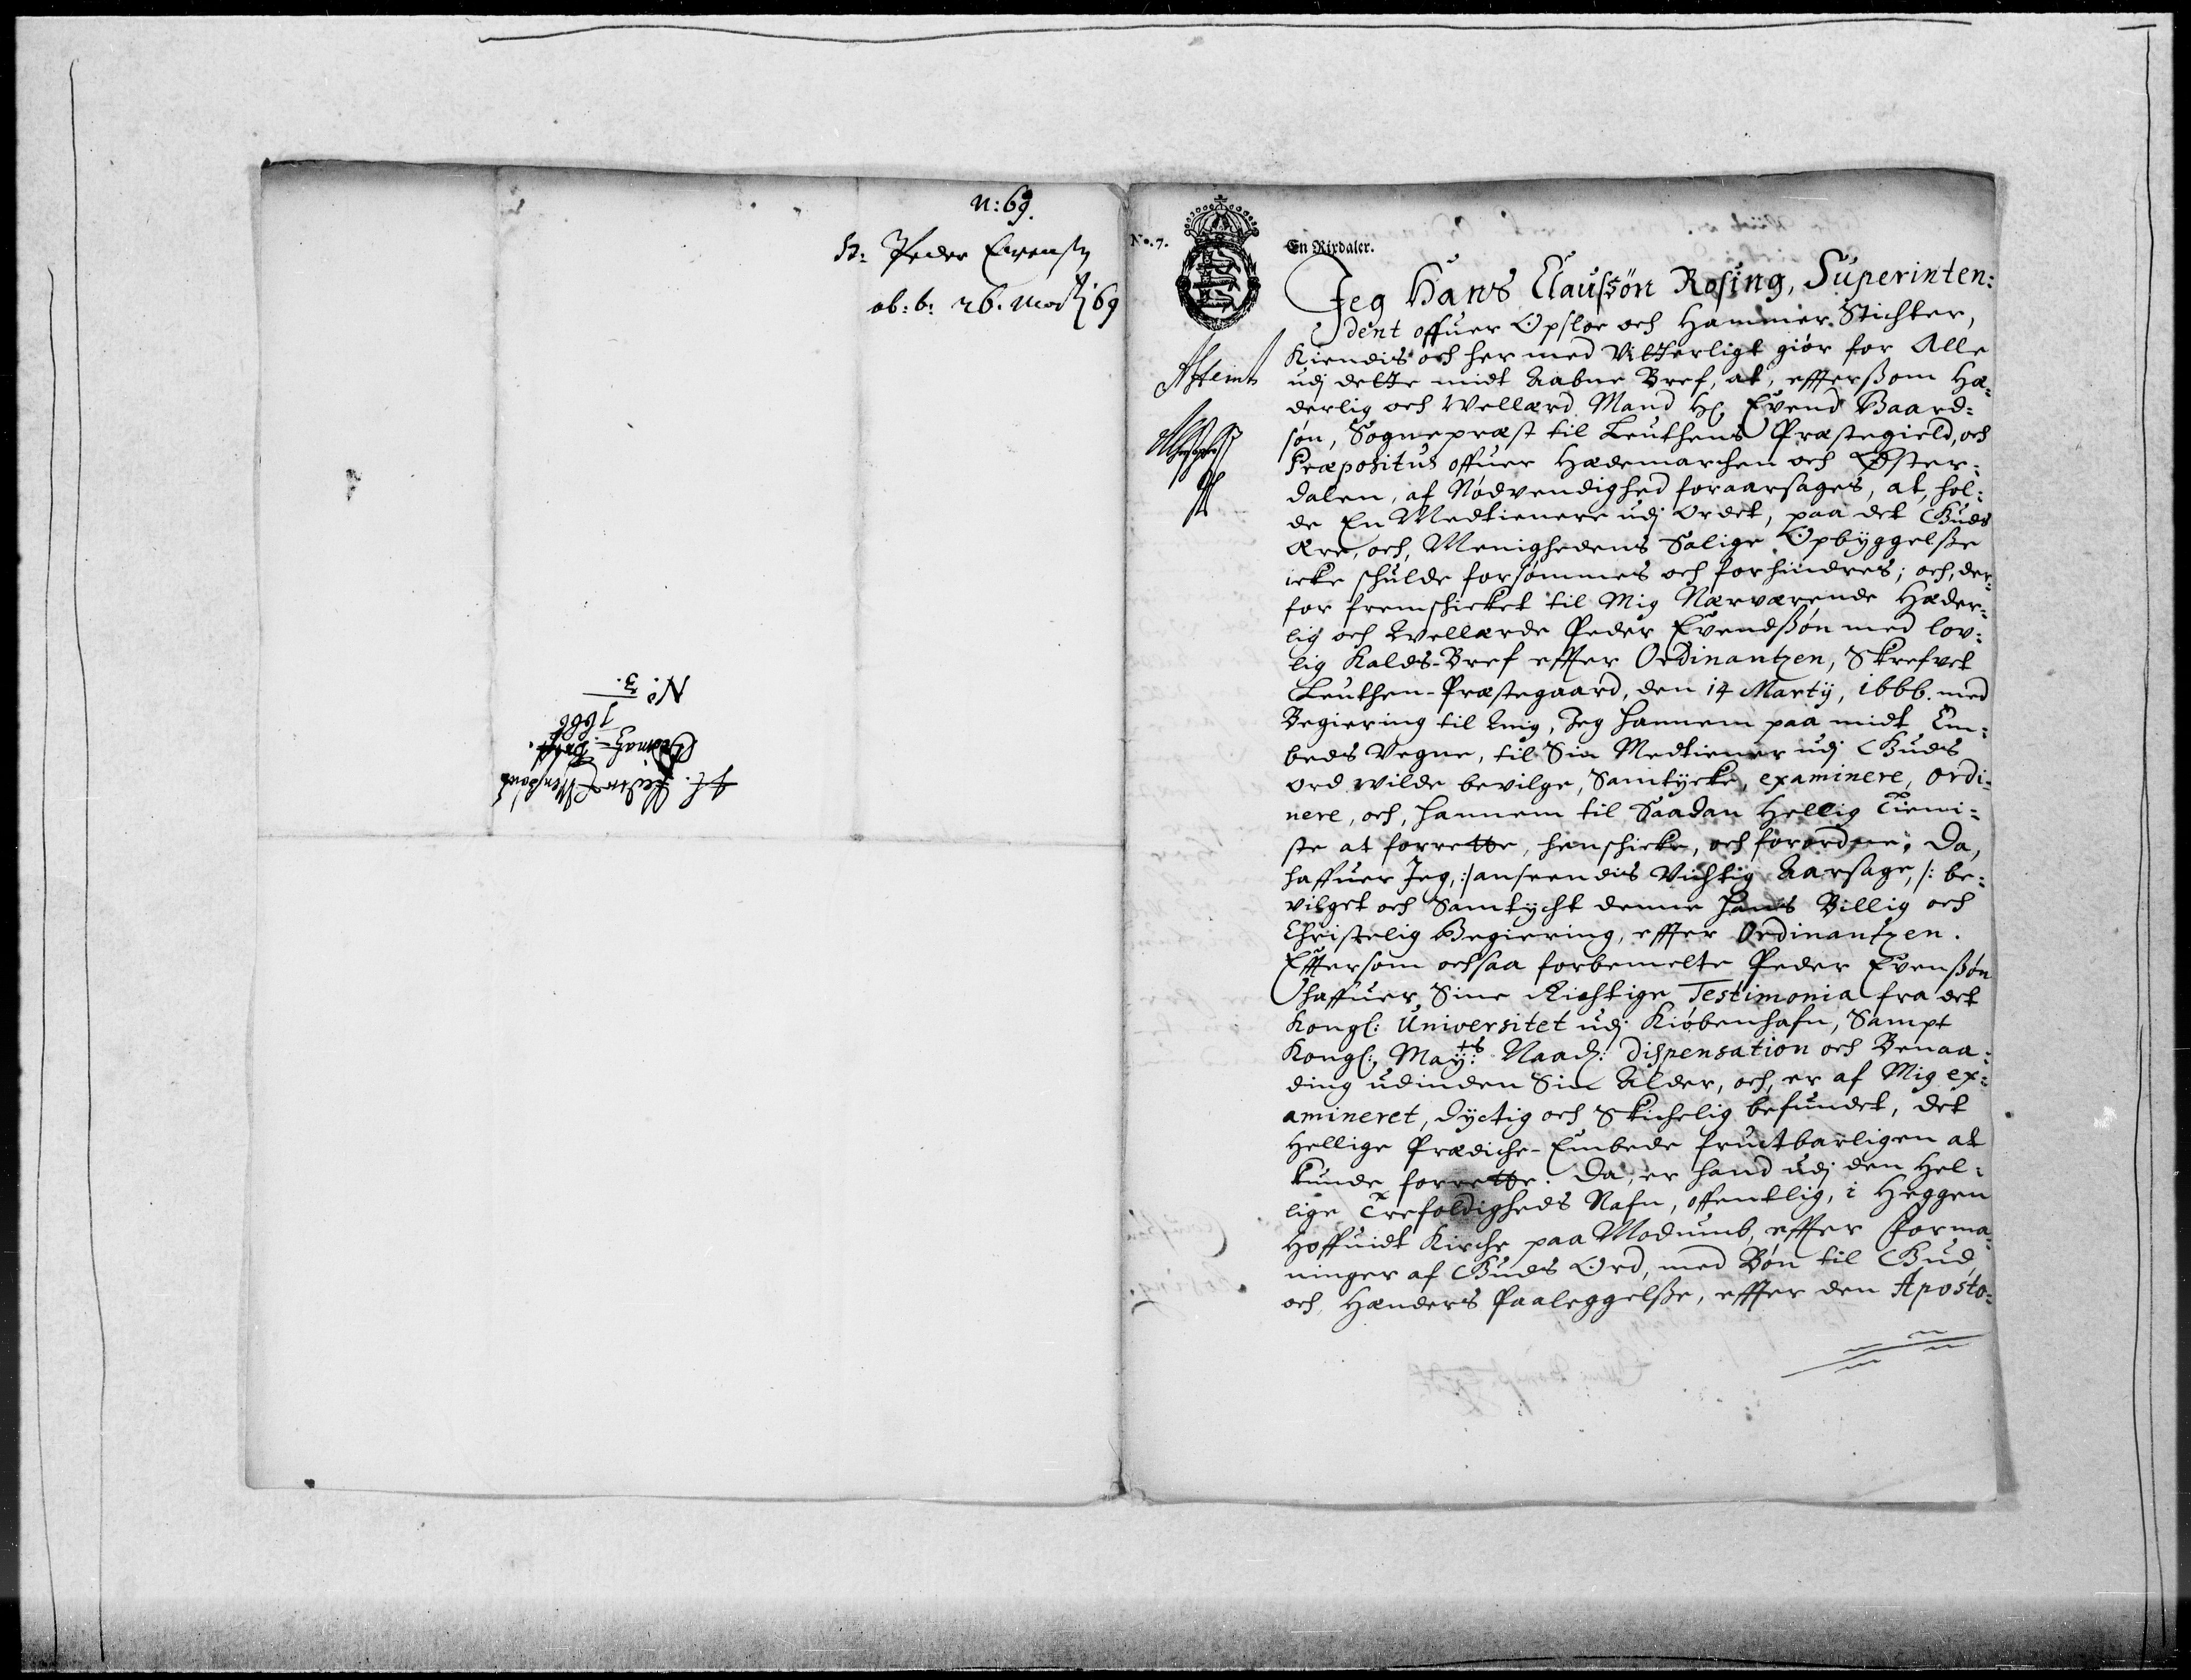 n: 69.
H: Peder Evens⟨n⟩
ob: b: 26. Martj 69
H. Peder Evensøns
Ordinatz-Breff.
1666
No. 3.
No. 7.
En Rixdaler.
Jeg Hans Claussøn Rosing, Superinten:
dent offuer Opsloe och Hammer Stichter,
Kiendis och her med Vitterligt giør for Alle
udj dette midt Aabne Bref, at, effterßom Hæ:
derlig och Wellærd Mand Hr Evend Baard:
søn, Sognepræst til Leuthens Præstegield, och
Præpositus offuer Hædemarchen och Øster:
dalen, af Nødvendighed foraarsages, at, hol:
de En Medtienere udj Ordet, paa det Guds
Ære, och, Menighedens Salige Opbyggelße
icke schulde forsømmes och forhindres; och, der:
for fremschicket til Mig Nærværende Hæder:
lig och Wellærde Peder Evendßøn med lov:
lig Kalds-Bref effter Ordinantzen, Skrefvet
Leuthen-Præstegaard, den 14 Martij, 1666. med
Begiering til mig, Jeg hannem paa midt Em:
beds Vegne, til Sin Medtiener udj Guds
Ord wilde bevilge, Samtycke, examinere, ordi:
nere, och, hannem til Saadan Hellig Tieni:
ste at forrette, henschicke, och forordne. Da,
haffuer Jeg, :/ anseendis Vichtig Aarsage, /: be:
vilget och Samtycht denne hans Billig och
Christelig Begiering, effter Ordinantzen.
Efftersom ochsaa forbemelte Peder Evenßøn
haffuer Sine Richtige Testimonia fra det
Kongl: Universitet udj Kiøbenhafn, Sampt
Kongl: May:ts Naad: Dispensation och Benaa:
ding udinden Sin Alder, och, er af Mig ex:
amineret, dyctig och Skichelig befundet, det
Hellige Prædiche-Embede fructbarligen at
kunde forrette. Da, er hand udj den Hel:
lige Trefoldigheds Nafn, offentlig, i Heggen
Hoffuidt Kirche paa Modumb, effter Forma:
ninger af Guds Ord, med Bøn til Gud,
och Hænders Paaleggelße, effter den Aposto: